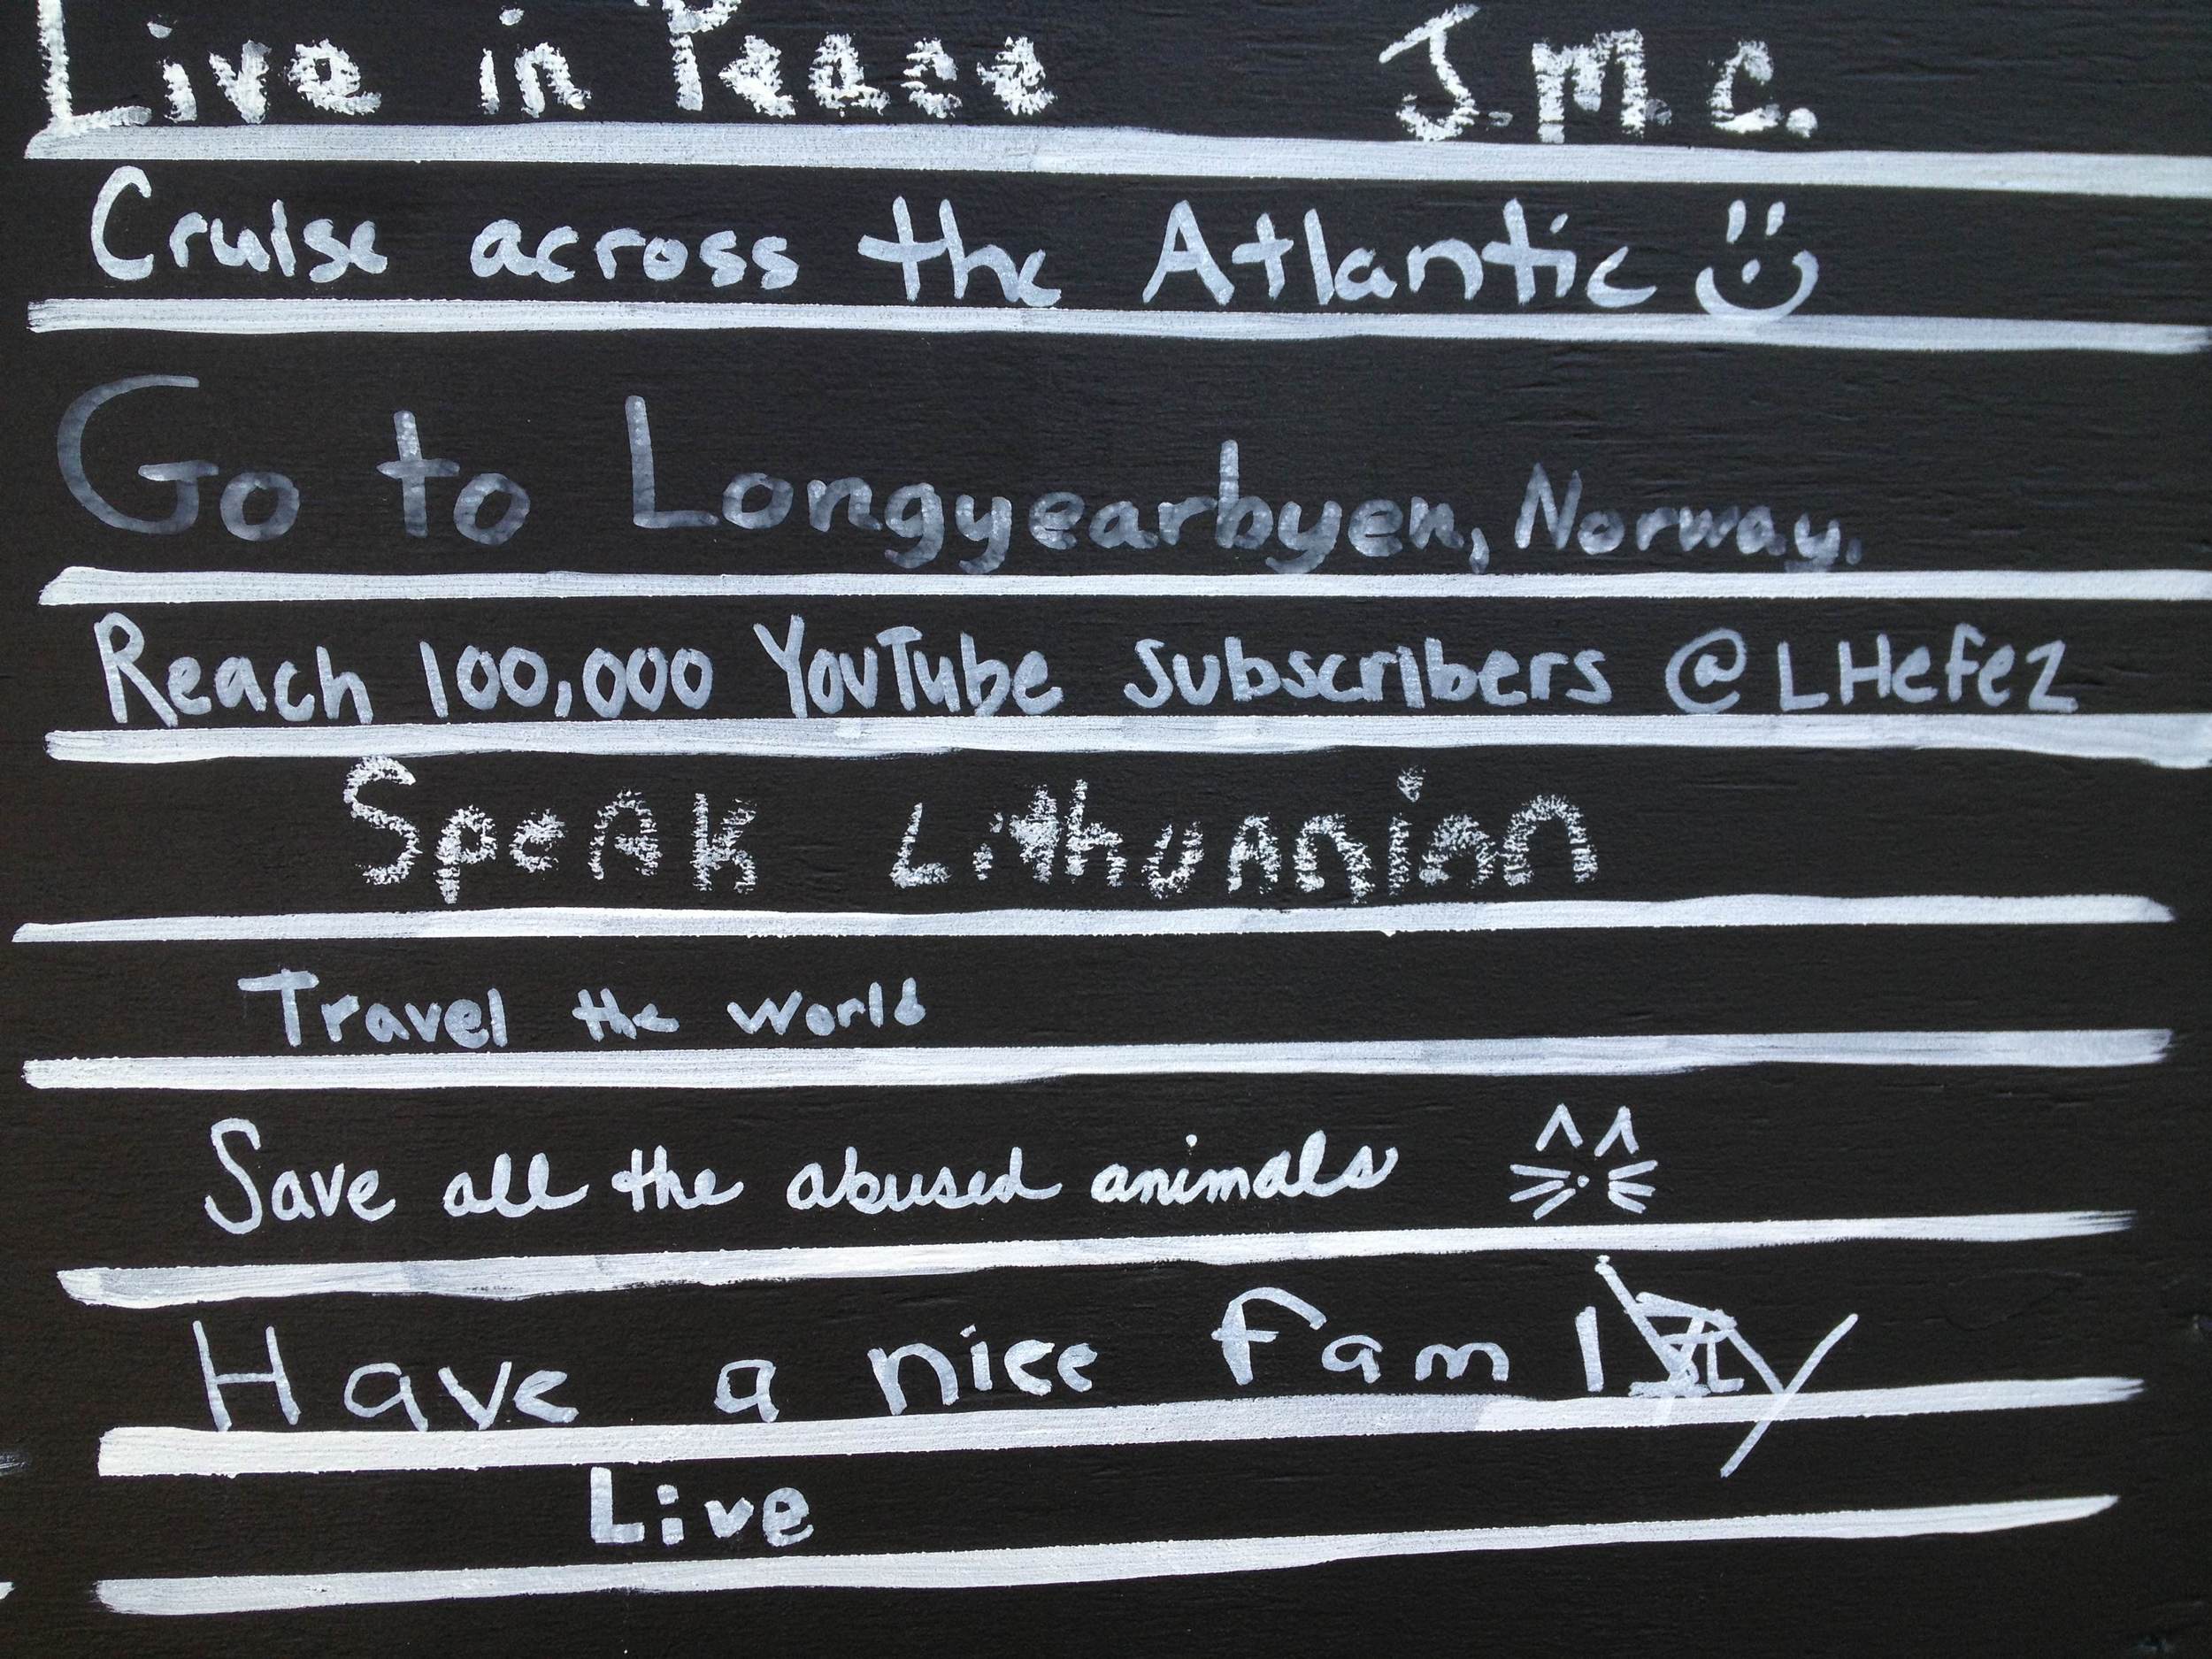 Live in Peace J.M.C.
Cruise across the Atlantic
Go to Longyearbyen, Norway.
Reach 100,000 YouTube subscribers @LHefez
SpeAk LithuAninn
Travel the world
Save all the abused animals
Have a nice famly
Live